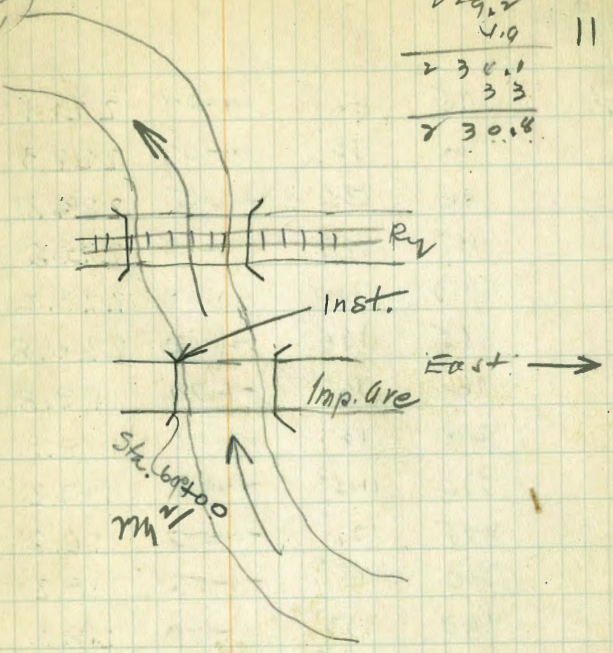 4.9
11
234.1
33
230.8
Ry
Inst.
East
Imp. Ave
Sta. 60+00